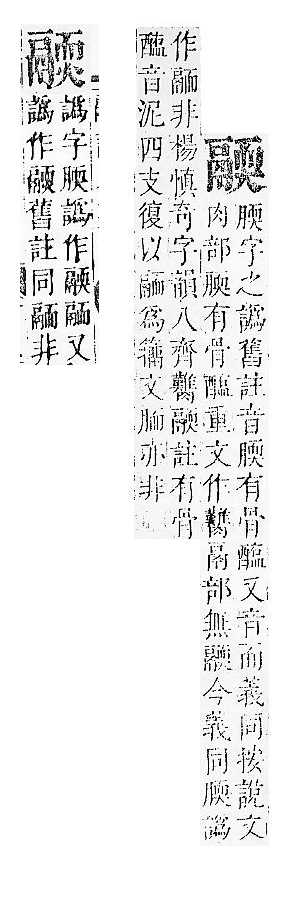 腝字之譌舊註音腝有骨醢又音而義同按說文
肉部腝有骨醢重文作臡鬲部無今義同腝譌
作非楊慎奇字韻八齊臡註有骨
醢音泥四支復以為籒文胹亦非
譌字腝譌作又
譌作舊註同非